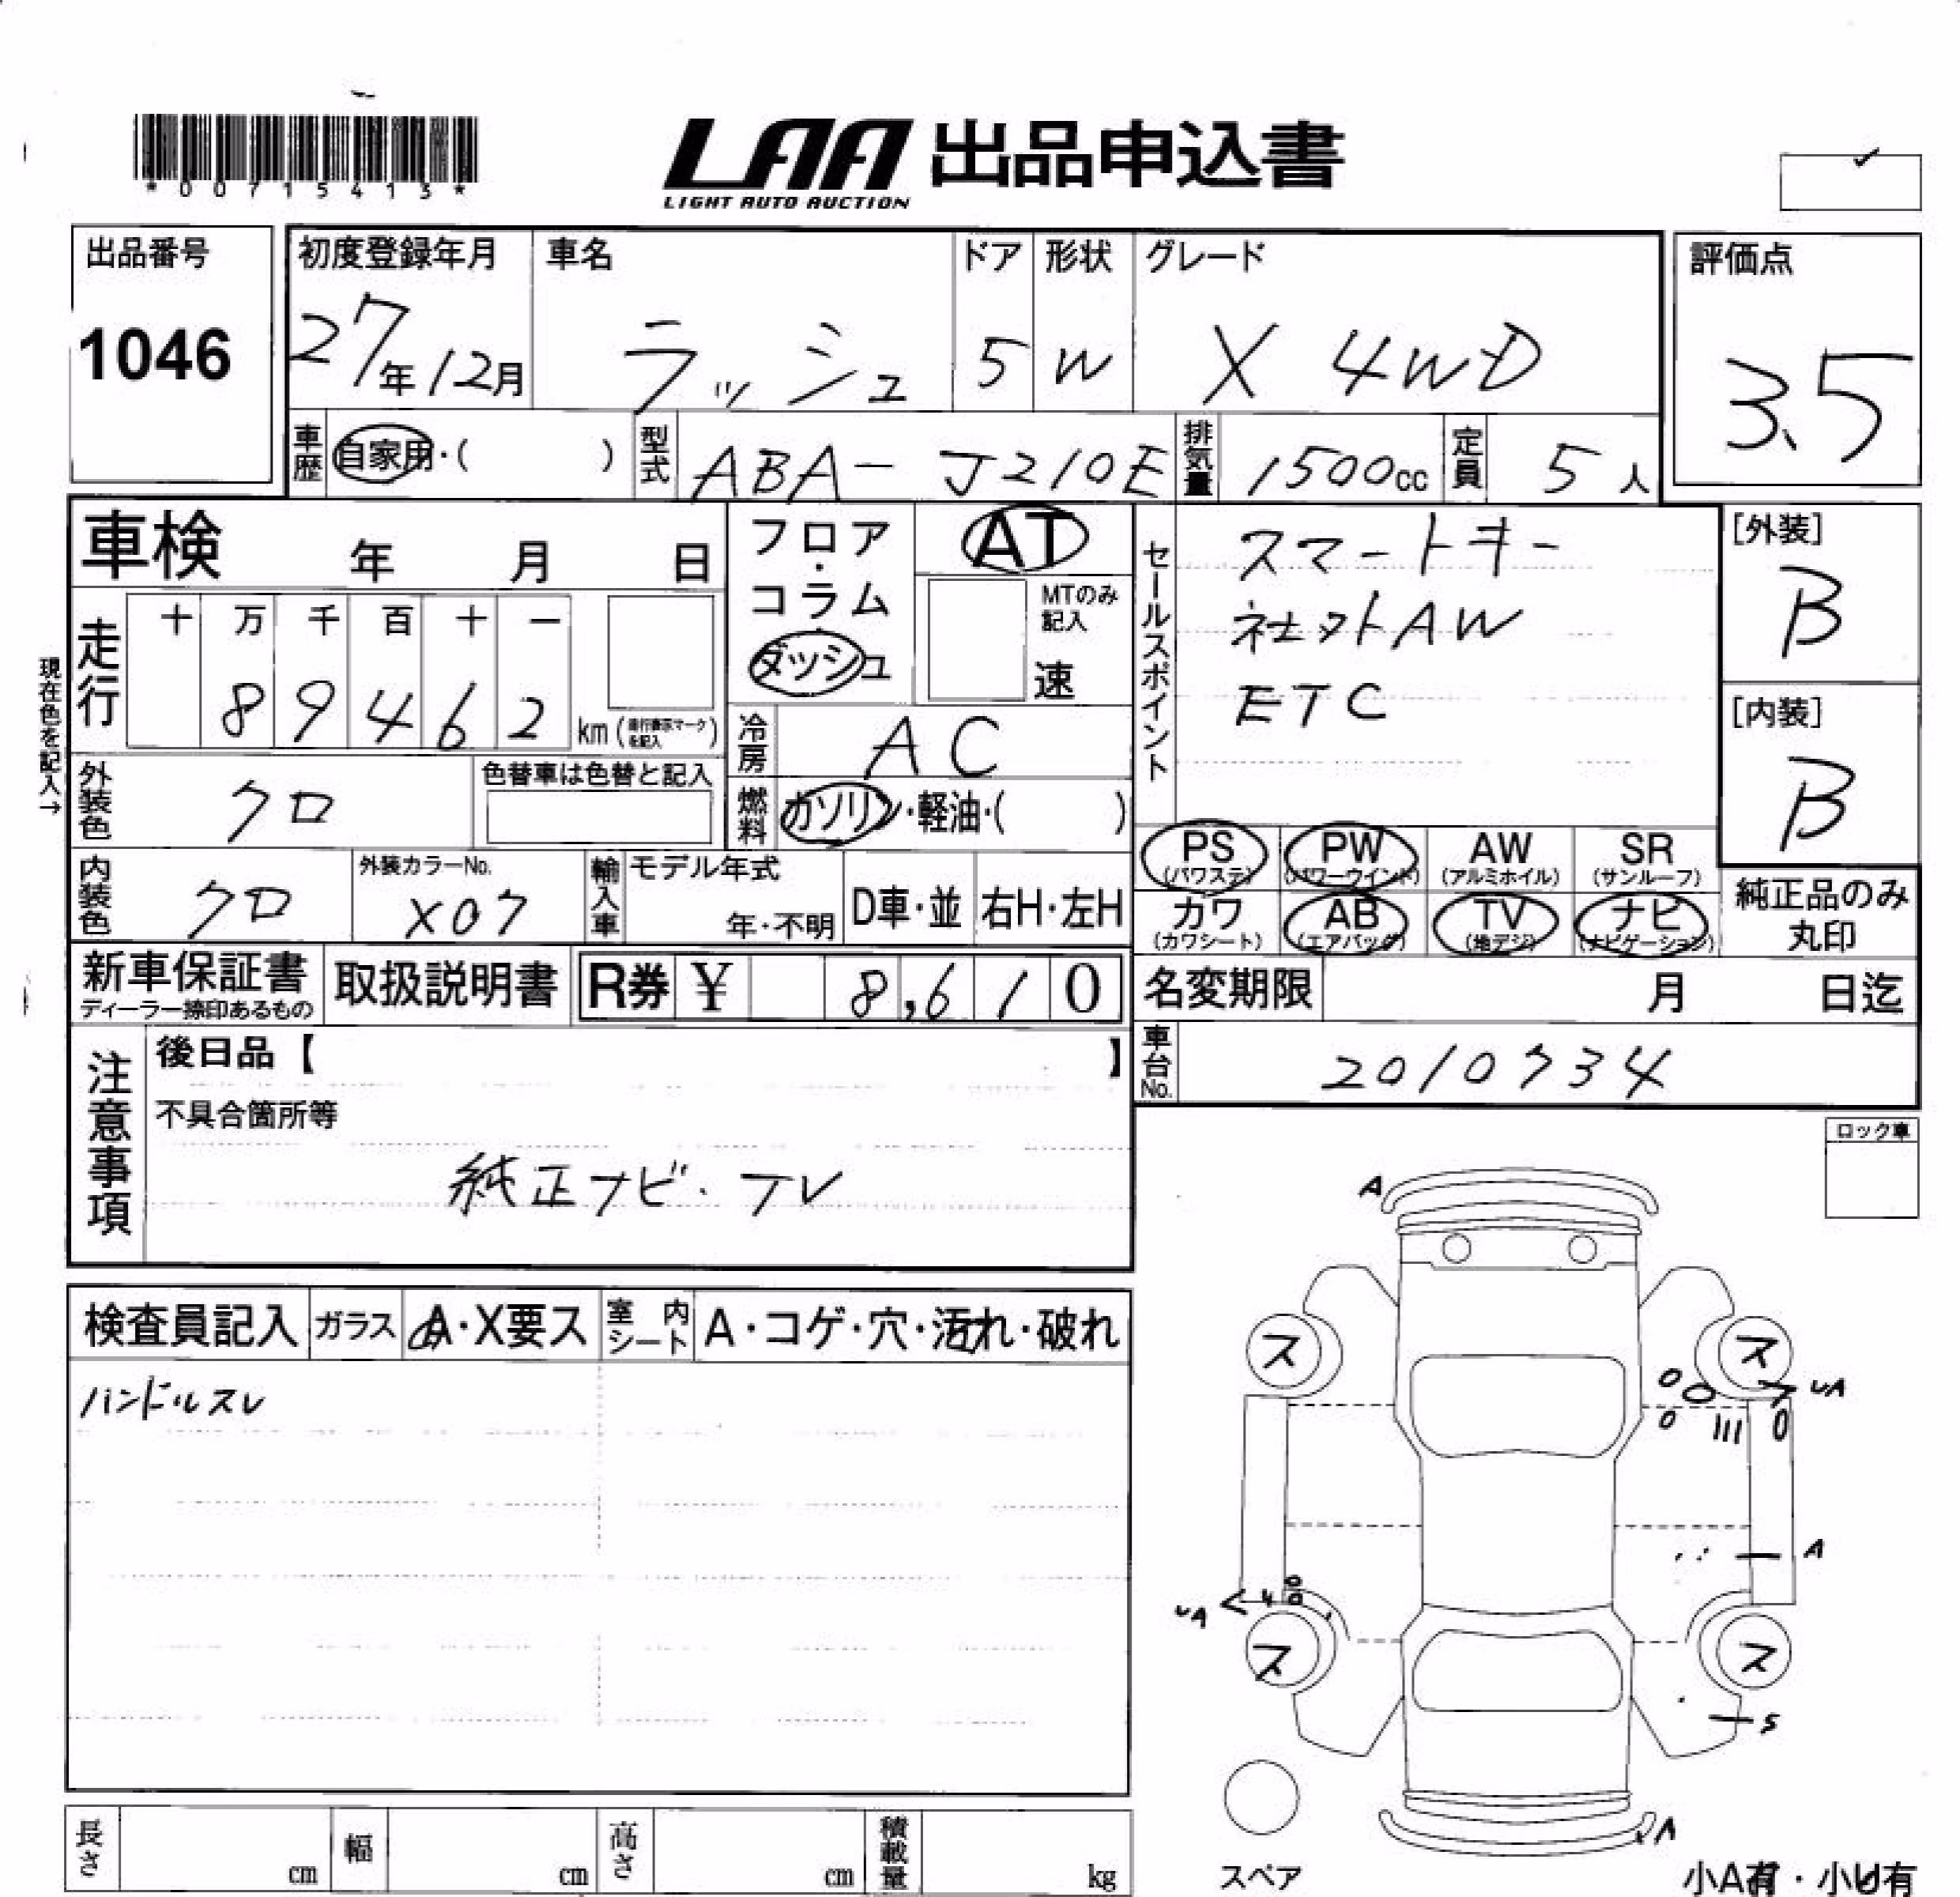 *00715413*
LAA 出品申込書
LIGHT AUTO AUCTION
出品番号
1046
初度登録年月
27年12月
車名
ラッシュ
ドア
5
形状
W
グレード
X 4WD
評価点
3.5
車歴
自家用・( )
型式
ABA-J210E
排気量
1500cc
定員
5人
車検 年 月 日
現在色を記入→
走行
十 万 千 百 十 一
8 9 4 6 2 km
外装色
クロ
色替車は色替と記入
内装色
クロ
外装カラーNo.
X07
フロア・コラム
ダッシュ
AT
MTのみ記入
速
冷房
AC
燃料
ガソリン・軽油・( )
輸入車
モデル年式
年・不明
D車・並
右H・左H
セールスポイント
スマートキー
社外AW
ETC
[外装]
B
[内装]
B
PS (パワステ)
PW (パワーウインド)
AW (アルミホイル)
SR (サンルーフ)
カワ (カワシート)
AB (エアバッグ)
TV (地デジ)
ナビ (ナビゲーション)
純正品のみ丸印
新車保証書
ディーラー捺印あるもの
取扱説明書
R券 ¥ 8,610
名変期限 月 日迄
車台No.
2010734
注意事項
後日品【 】
不具合箇所等
純正ナビ・TV
ロック車
検査員記入
ガラス
A・X要ス
室内シート
A・コゲ・穴・汚れ・破れ
ハンドルスレ
A
ス ス
UA
A
UA
ス ス
S
A
スペア
小A有・小U有
長さ cm
幅 cm
高さ cm
積載量 kg